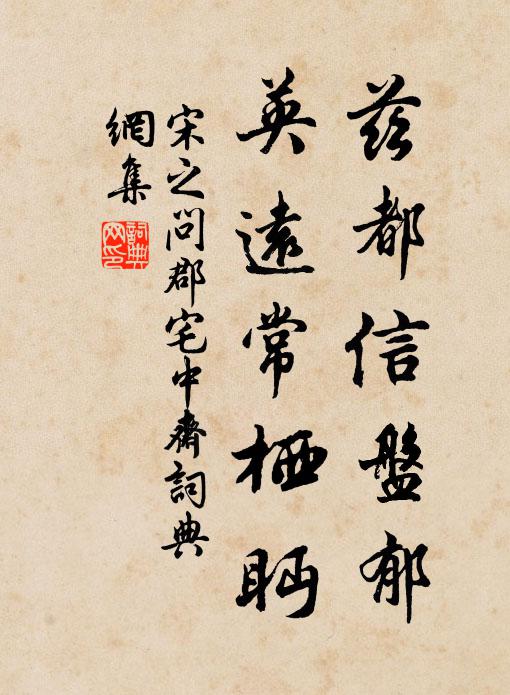 茲都信盤郁
英遠常栖眄
宋之問郡宅中齋詞典
網集
詞典網印